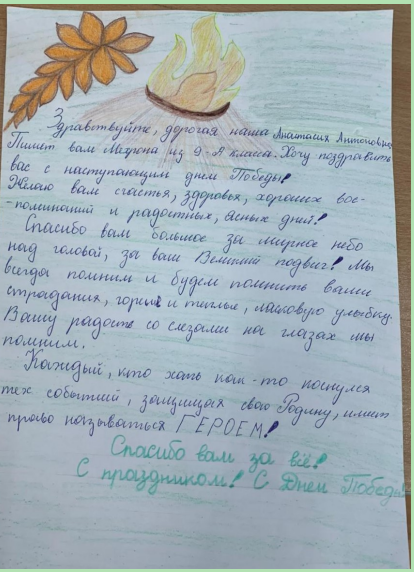 Здравствуйте, дорогая наша Анастасия Антоновна
Пишет вам Матрона из 9-А класса. Хочу поздравить
вас с наступающим днем Победы!
Желаю вам счастья, здоровья, хороших вос-
-поминаний и радостных, ясных дней!
Спасибо вам большое за мирное небо
над головой, за ваш Великий подвиг! Мы
всегда помним и будем помнить ваши
страдания, горы и теплые, ласковую улыбку.
Вашу радость со слезами на глазах мы
помним.
Каждый, кто хоть как-то коснулся
тех событий, защищая свою Родину, имеет
право называться ГЕРОЕМ!
Спасибо вам за всё!
С праздником! С Днем Победы!